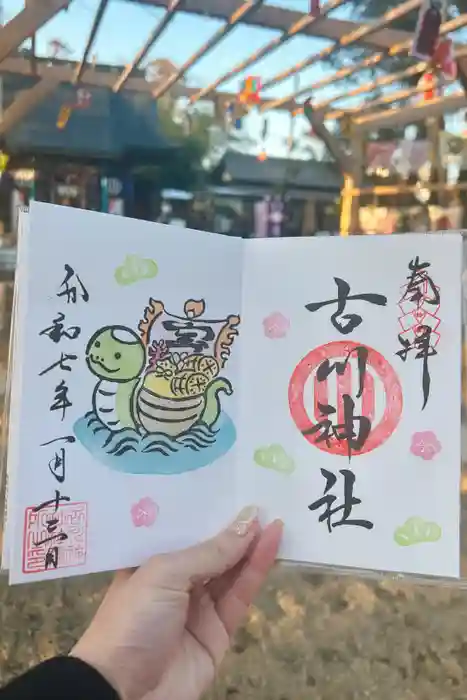 奉拝
古川神社
令和七年一月十三日